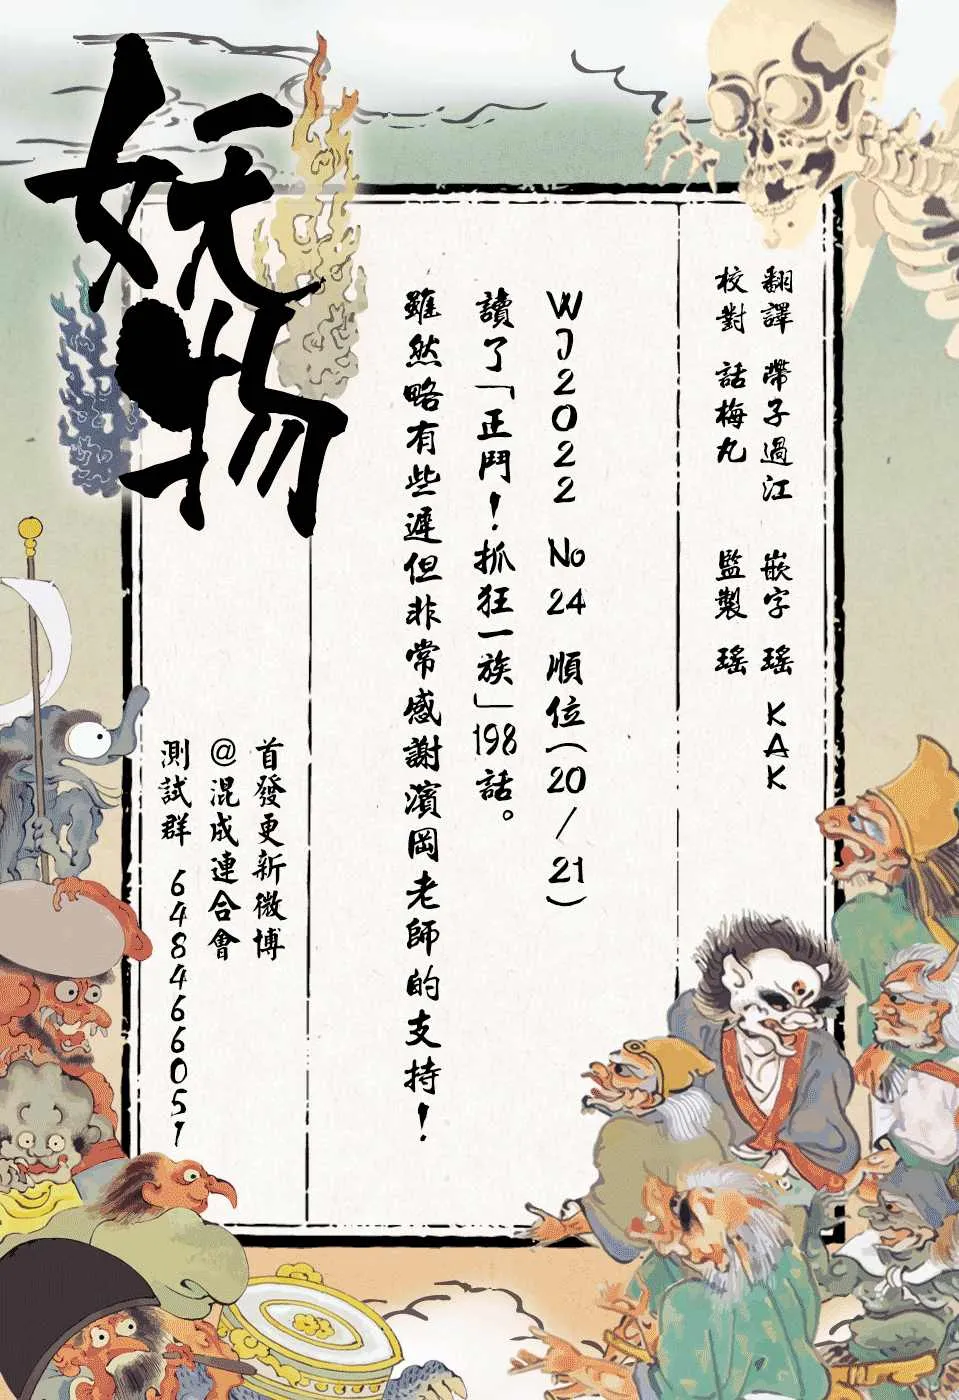 妖物
翻譯 帶子過江 嵌字 瑤 KAK
校對 話梅丸 監製 瑤
WJ2022 No24 順位(20/21)
讀了「正鬥!抓狂一族」198話。
雖然略有些遲但非常感謝濱岡老師的支持!
首發更新微博
@混成連合會
測試群 648466051